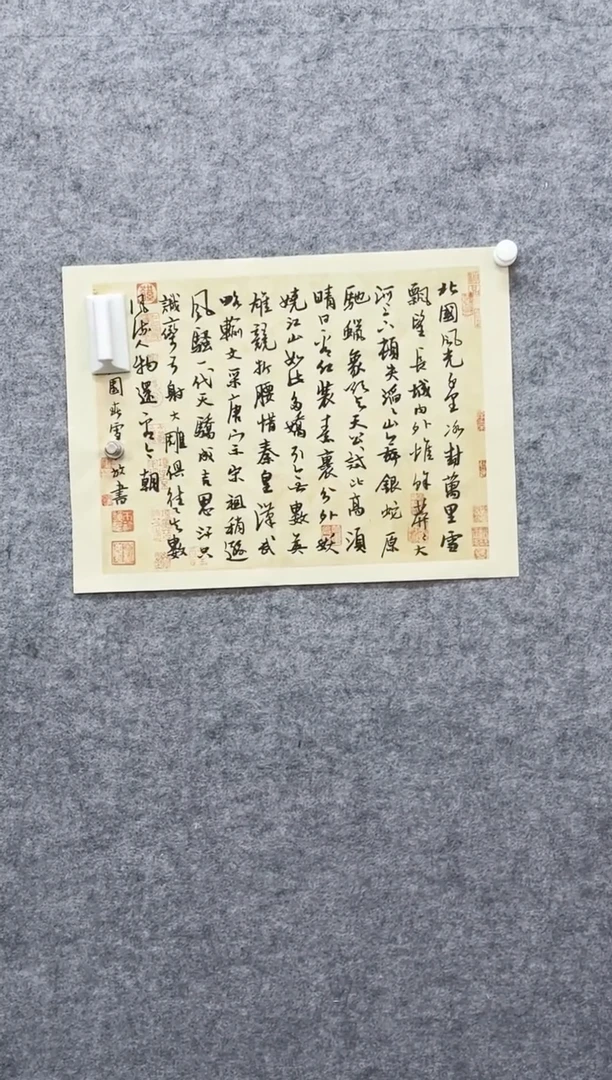 北國風光千里冰封萬里雪
飄望長城內外惟餘莽〻大
河上下頓失滔〻山舞銀蛇原
馳蠟象欲與天公試比高須
晴日看紅裝素裹分外妖
嬈江山如此多嬌引無數英
雄競折腰惜秦皇漢武
略輸文采唐宗宋祖稍遜
風騷一代天驕成吉思汗只
識彎弓射大雕俱往矣數
風流人物還看今朝
園春雪 書